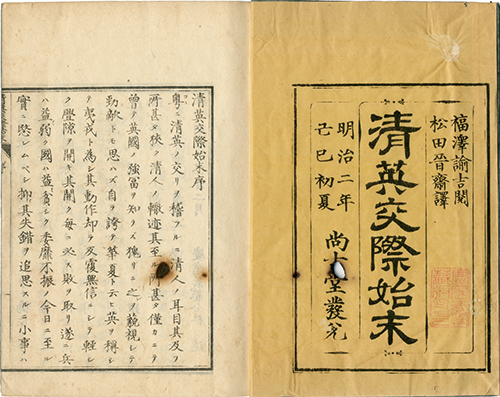 福澤諭吉閲
松田晉齋譯
清英交際始末
明治二年
己巳初夏
尚古堂發兌
清英交際始末序
粤ニ清英ノ交リヲ稽フルニ清人ノ耳目其及フ
所甚タ狹ク清人ノ轍迹其至ル所甚タ僅カニ
曾テ英國ノ強富ヲ知ラス猥リニ之ヲ藐視シテ
勁敵ト思ハス自ラ誇テ華夏ト云ヒ英ヲ稱シ
テ夷戎ト為シ其動作却テ反覆無信ニシテ輕シ
ク釁隙ヲ開キ其開ク毎ニ必ス敗ヲ取リ遂ニ兵
ハ益弱ク國ハ益貧シク委靡不振ノ今日ニ至ル
實ニ愍レムベシ抑其失錯ヲ追思スルニ小事ハ